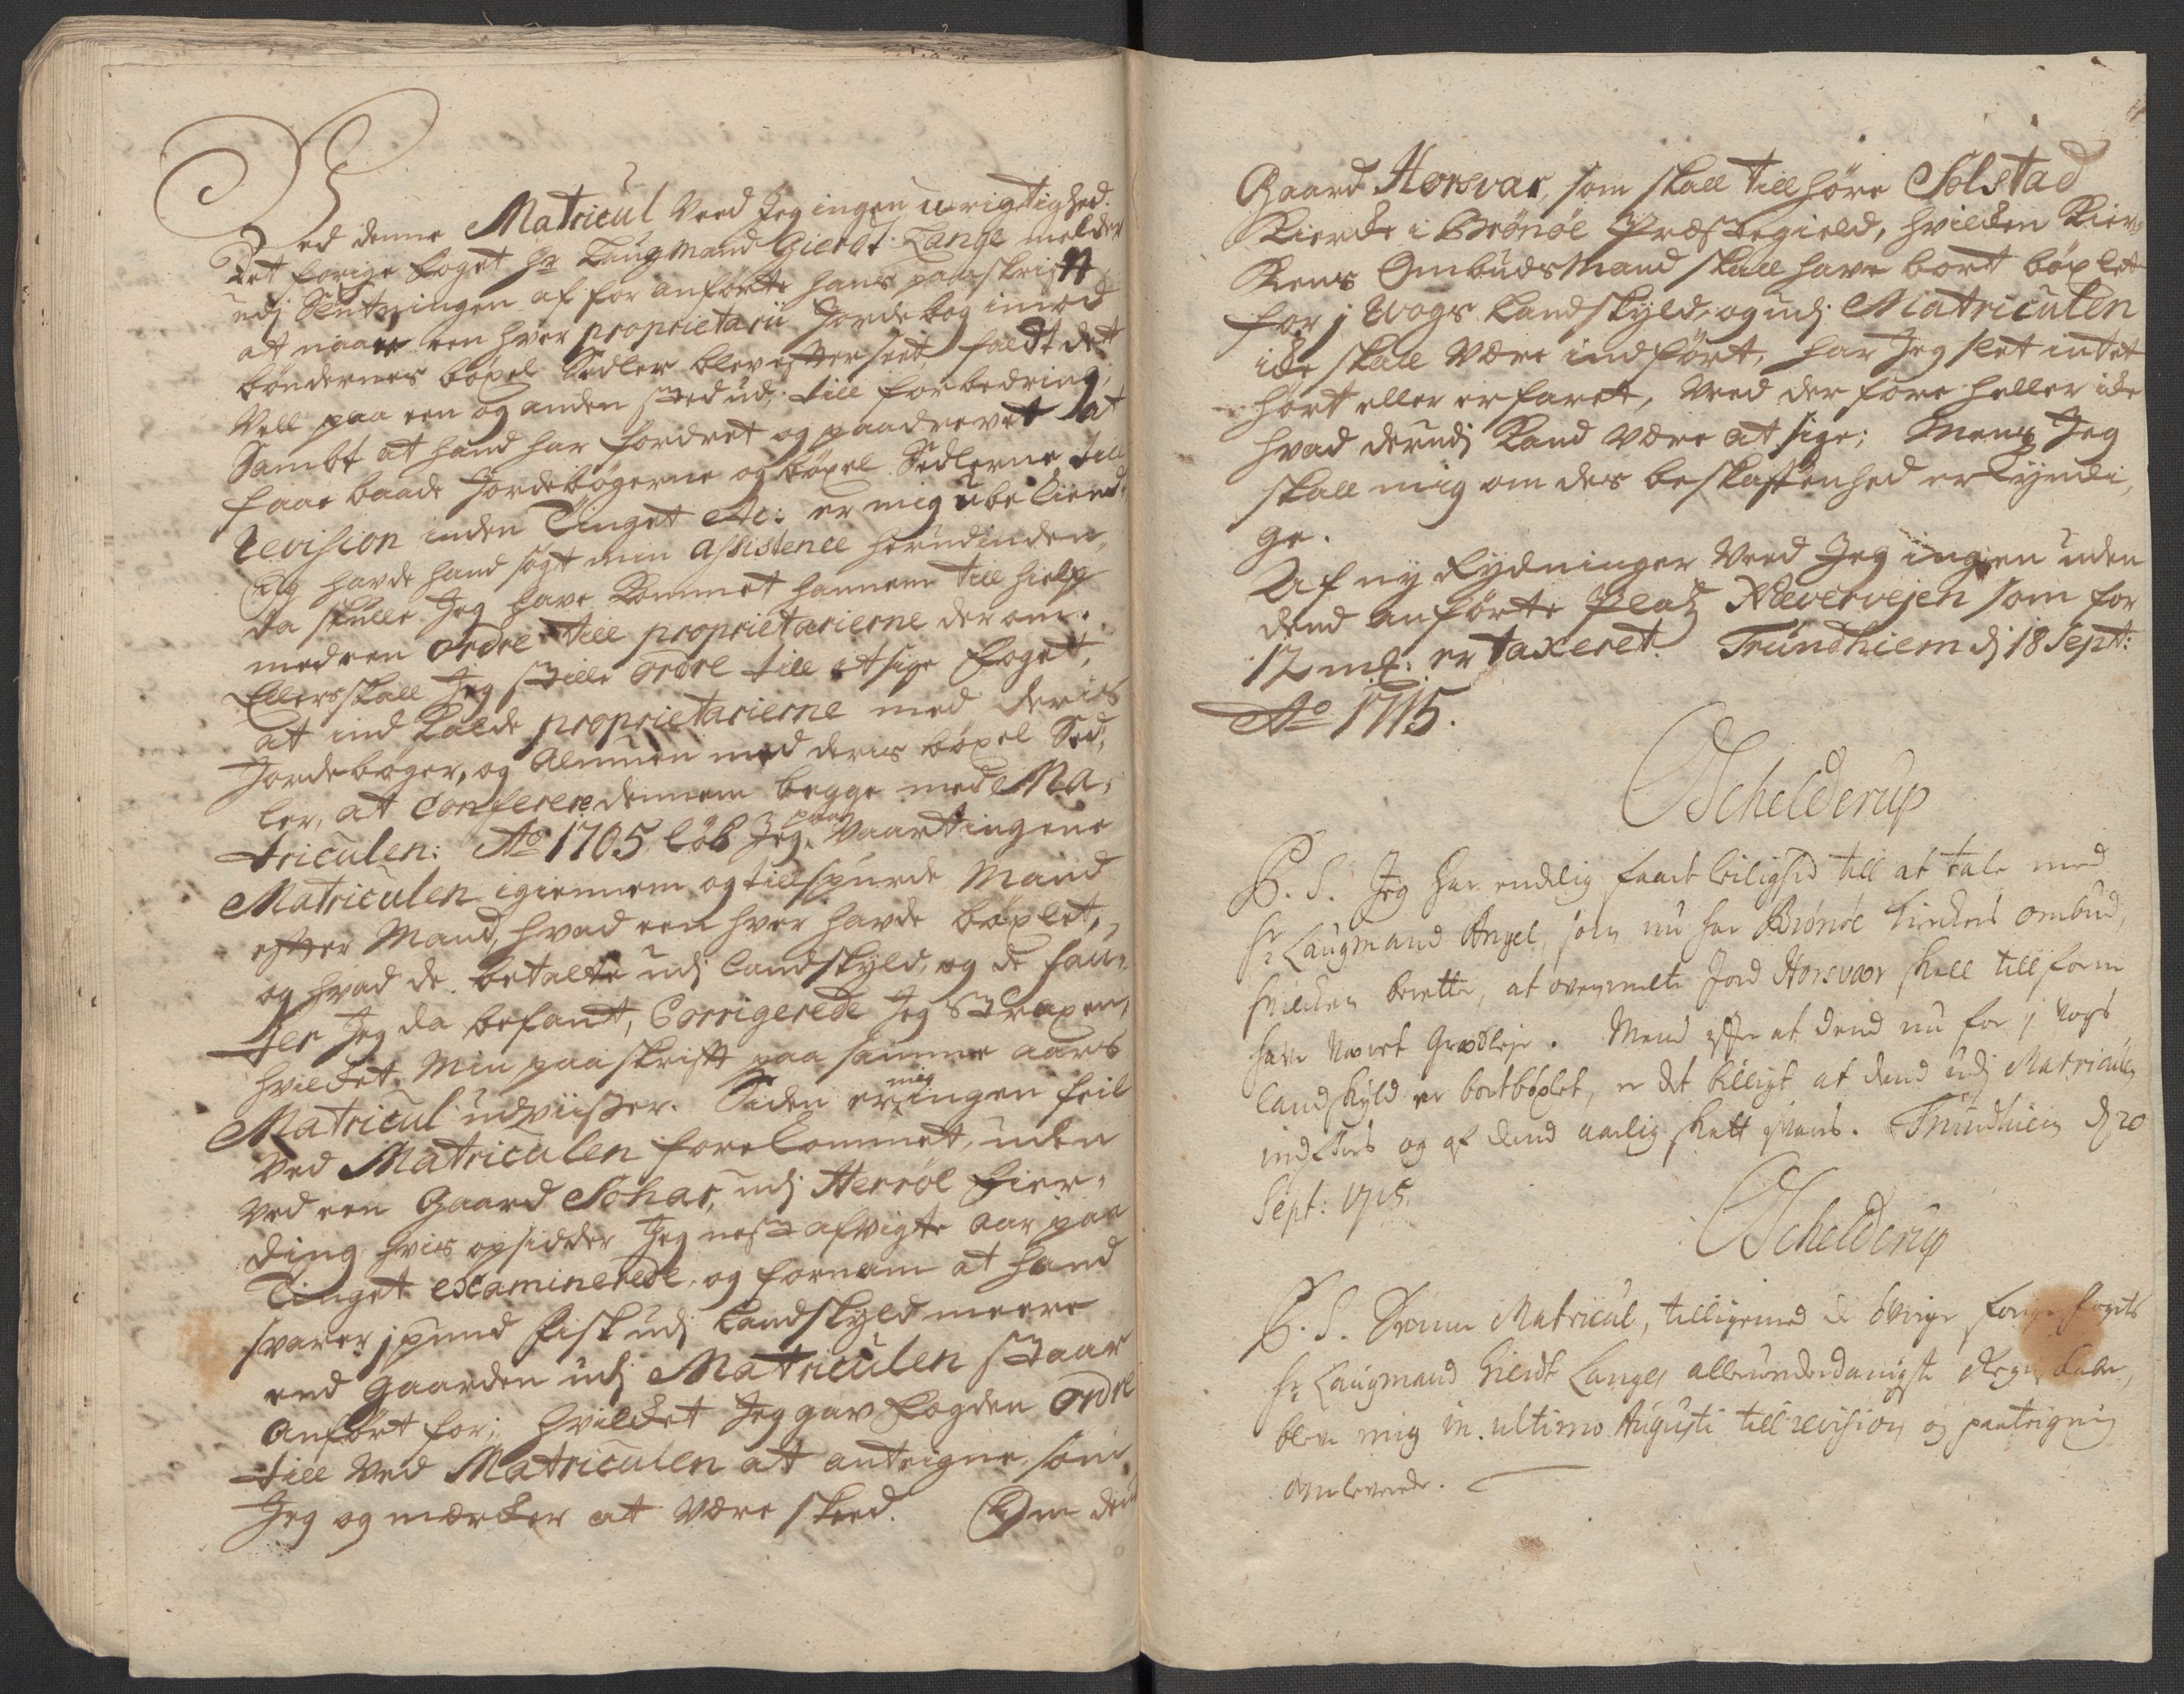 Ved denne Matricul Veed Jeg ingen urigtighed.
Det forige foget Hr Laugmand Gierdt Lange melder
udj Slutningen af for anførte hans paaskrifft
at naar een hver proprietarii Jordebog imod
bøndernes böxel Sedler blev effterseet, faldt det
Vell paa een og anden sted ud, till forbedring;
Sambt at hand har fordret og paadrevet at
faae baade Jordebøgerne og böxel Sedlerne till
Revision inden Tinget etc: er mig ubekiendt,
Og havde hand søgt min assistence herudinden,
da skulle Jeg have kommet hannem till hielp
med een ordre till proprietarierne derom.
Ellers skall Jeg stille ordre till itzige foget,
at ind kalde proprietarierne med deris
Jordebøger, og Almuen med deris böxel Sed,
ler, at Conferere dennem begge med Ma,
triculen: Ao 1705 løb Jeg paa Vaartingene
Matriculen igiennem og tillspurde Mand
effter Mand, hvad een hver havde böxlet,
og hvad de betalte udj Landskyld, og de fau,
ter Jeg da befandt, Corrigerede Jeg Straxen,
hvilket min paaskrifft paa samme aars
Matricul udviisser. Siden er mig ingen feil
Ved Matriculen forekommet, uden
Ved een Gaard Sohar, udj Herröe fier,
ding, hvis opsidder Jeg nest afvigte aar paa
Tinget examinerede, og fornam at hand
svarer j pund fisk udj Landskyld meere
end Gaarden udj Matriculen staar
anført for; hvilket Jeg gav fogden ordre
till Ved Matriculen at anteigne, som
Jeg og mærker at være skeed. Om den
Gaard Horsvar, som skall tillhøre Solstad
Kierke i Brönöe Præstegield, hvilken Kier,
kens Ombudsmand skall have bort böxlet
for j Wogs Landskyld, og udj Matriculen
icke skall være indført, har Jeg slet intet
hørt eller erfaret, Veed derfore heller icke
hvad derudj kand være at sige; Mens Jeg
skall mig om des beskaffenhed erkyndi,
ge.
Af ny Rydninger Veed Jeg ingen uden
dend anførte Platz Nævervejen som for
12 mk: er taxeret. Trundhiem dj 18 Sept:
Ao 1715.
OSchelderup
P. S. Jeg har endelig faaet leilighed till at tale med
Hr Laugmand Angel, som nu har Brönöe Kirckes ombud,
hvilcken berette, at ovenmelte Jord Horsvær skall tillforn
have været Grædsleje. Mend efter at dend nu for j Vogs
landskyld er bortböxlet, er det billigt at dend udj Matriculen
indføres og af dend aarlig skatt svares. Trundhiem dj 20
Sept: 1715.
OSchelderup
P. S. Denne Matricul, tilligemed de övrige forige fogets
Hr Laugmand Gierdt Langes allerunderdanigste Regnskaber,
blev mig in ultimo Augusti till revision og paateigning
overleverede.